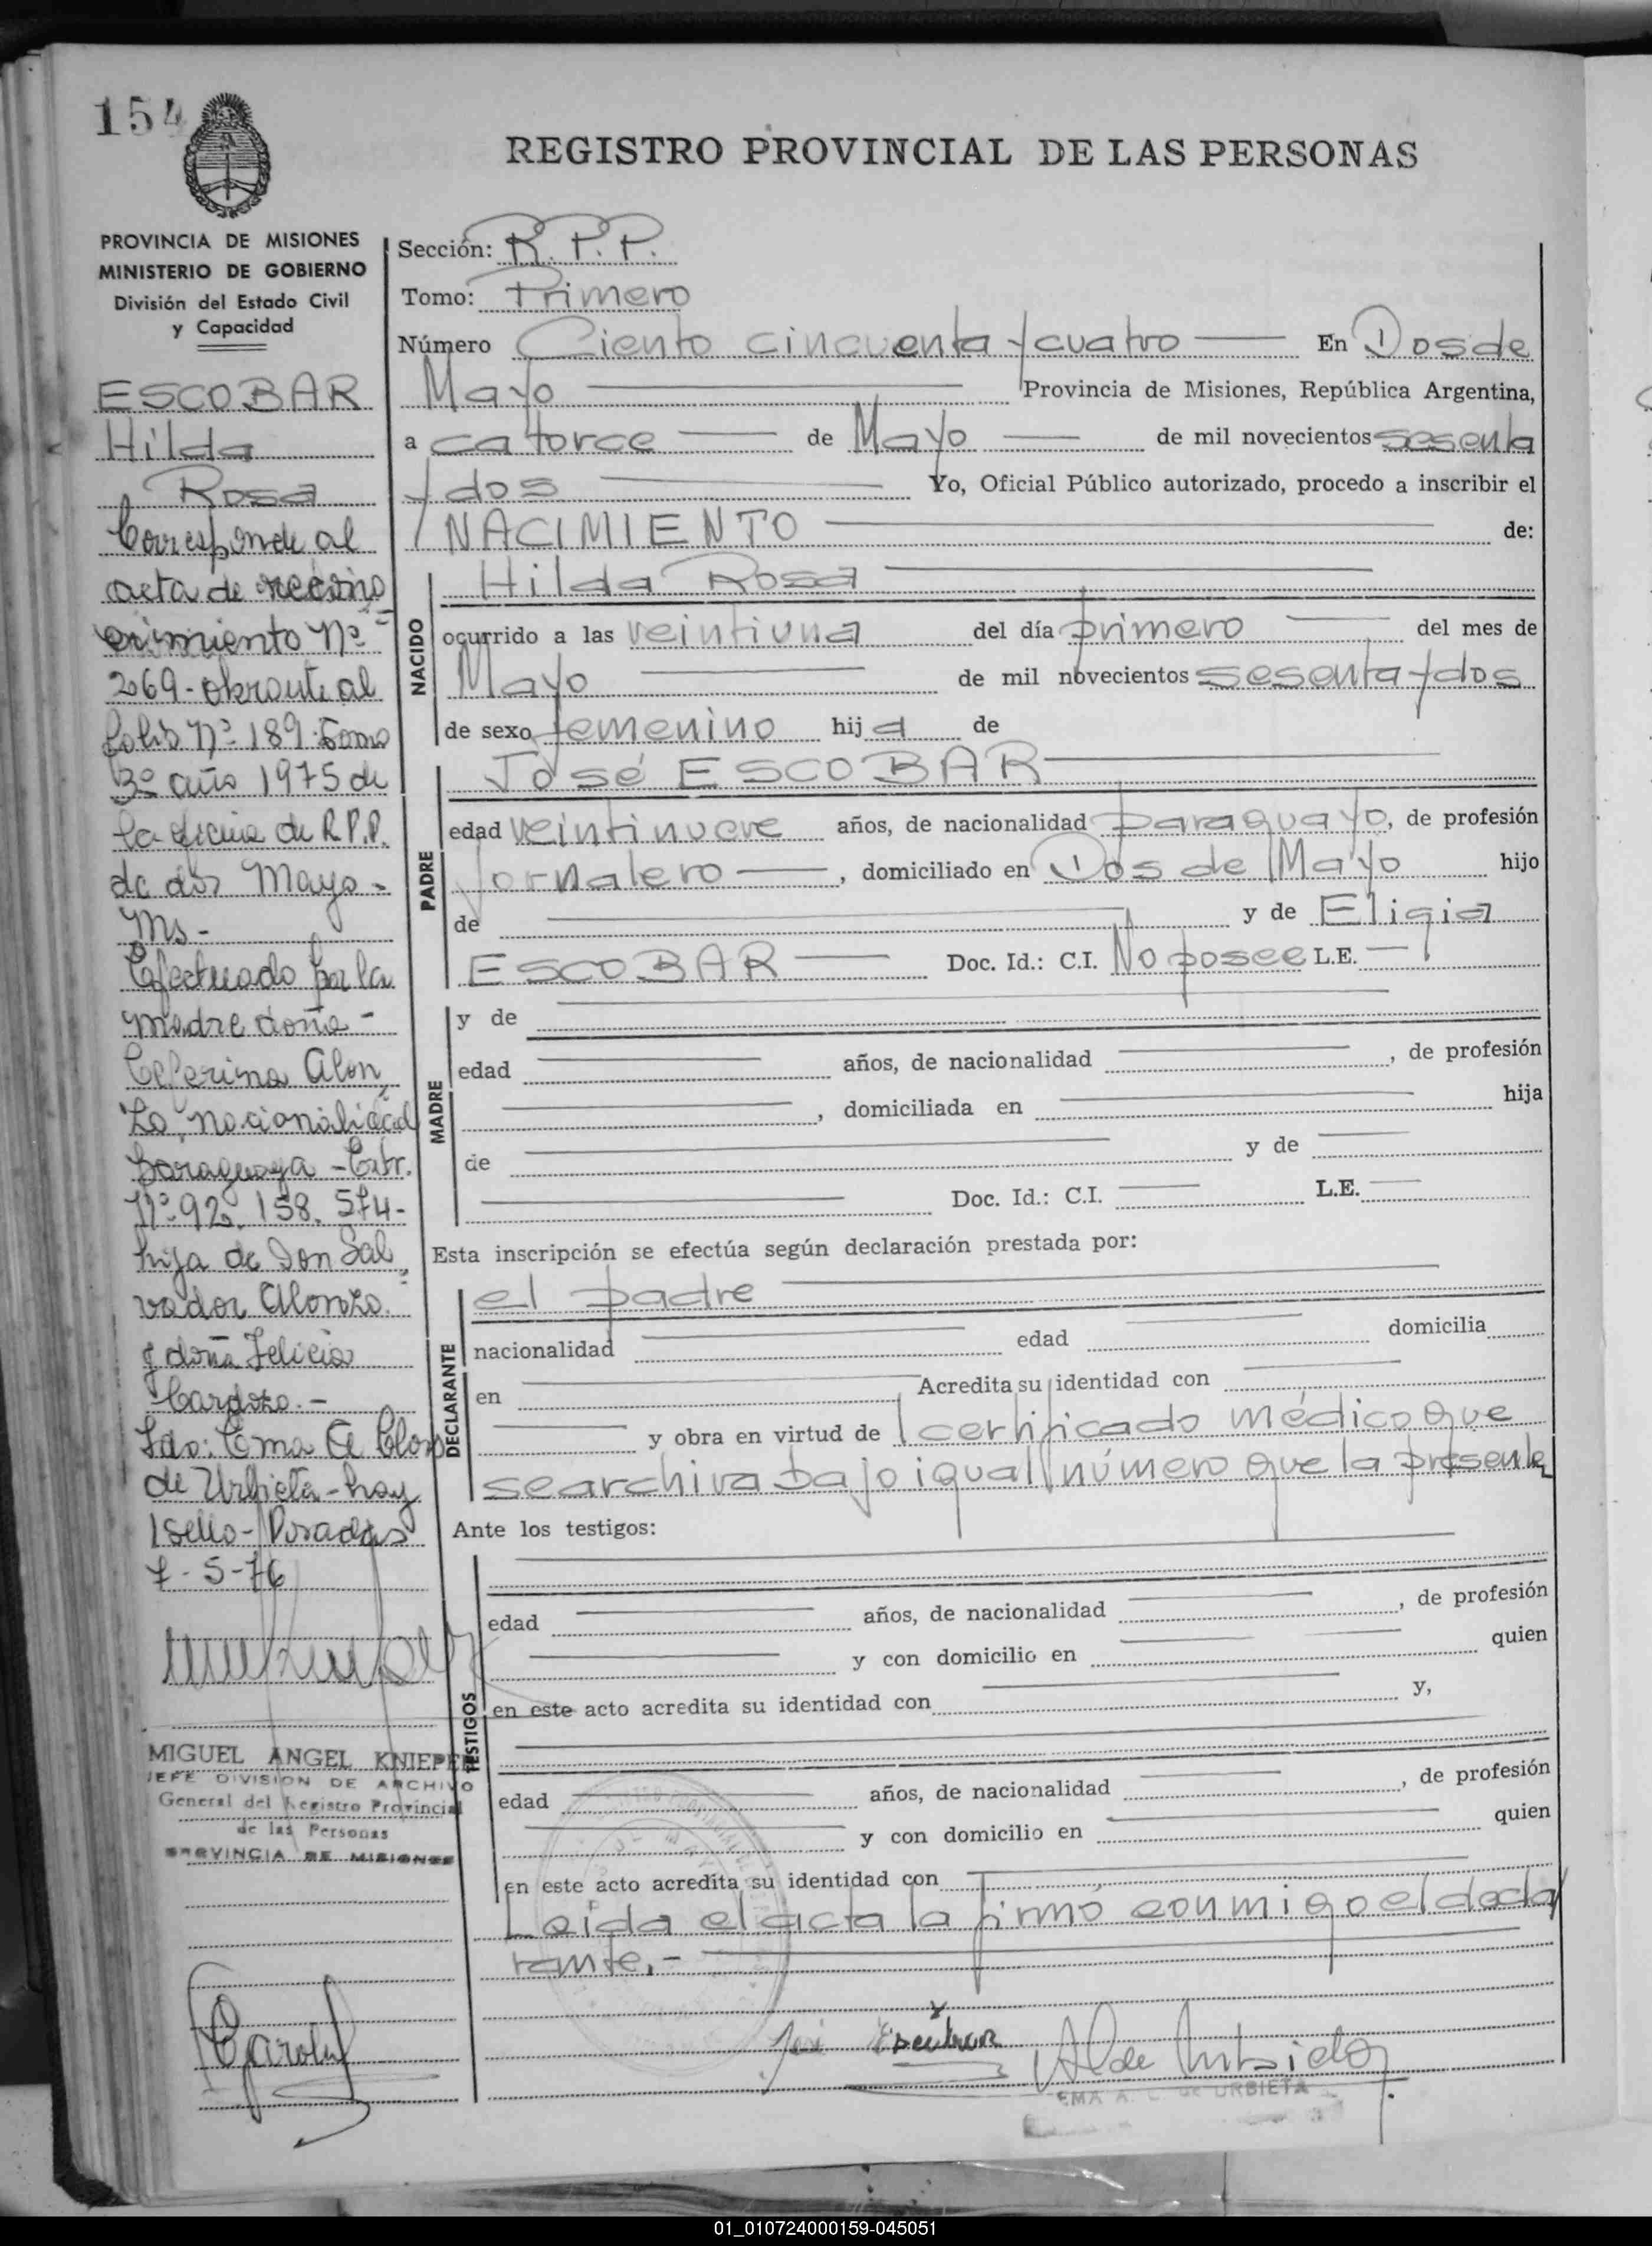 154
REGISTRO PROVINCIAL DE LAS PERSONAS
PROVINCIA DE MISIONES
MINISTERIO DE GOBIERNO
División del Estado Civil
y Capacidad
ESCOBAR
Hilda
Rosa
Corresponde al
acta de recono
cimiento Nº
269- obrante al
folio Nº 189 Tomo
3º año 1975 de
la oficina de R.P.P.
de dos Mayo -
Ms -
Efectuado por la
madre doña -
Ceferina Alon
zo, nacionalidad
paraguaya - Extr.
Nº 92. 158. 574-
hija de Don Sal
vador Alonzo.
y doña Felicia
Cardozo. -
Fdo: Ema A
de Urbieta - hay
1 sello - Posadas
7-5-76
MIGUEL ANGEL KNIEPE
JEFE DIVISION DE ARCHIVO
General del Registro Provincial
de las Personas
PROVINCIA DE MISIONES
Sección: R. P. P.
Tomo: Primero
Número Ciento cincuenta y cuatro En Dos de
Mayo Provincia de Misiones, República Argentina,
a catorce de Mayo de mil novecientos sesenta
y dos Yo, Oficial Público autorizado, procedo a inscribir el
NACIMIENTO de:
NACIDO
Hilda Rosa
ocurrido a las veintiuna del día primero del mes de
Mayo de mil novecientos sesenta y dos
de sexo femenino hij a de
PADRE
José ESCOBAR
edad veintinueve años, de nacionalidad paraguayo, de profesión
jornalero , domiciliado en Dos de Mayo hijo
de y de Eligia
ESCOBAR Doc. Id.: C.I. No posee L.E.
MADRE
y de
edad años, de nacionalidad , de profesión
, domiciliada en hija
de y de
Doc. Id.: C.I. L.E.
Esta inscripción se efectúa según declaración prestada por:
DECLARANTE
el padre
nacionalidad edad domicilia
en Acredita su identidad con
y obra en virtud de certificado médico que
se archiva bajo igual número que la presente
Ante los testigos:
TESTIGOS
edad años, de nacionalidad , de profesión
y con domicilio en quien
en este acto acredita su identidad con y,
edad años, de nacionalidad , de profesión
y con domicilio en quien
en este acto acredita su identidad con
Leida el acta la firmó conmigo el decla
rante. -
José Escobar
A de Urbieta
EMA A. C. de URBIETA
01_010724000159-045051